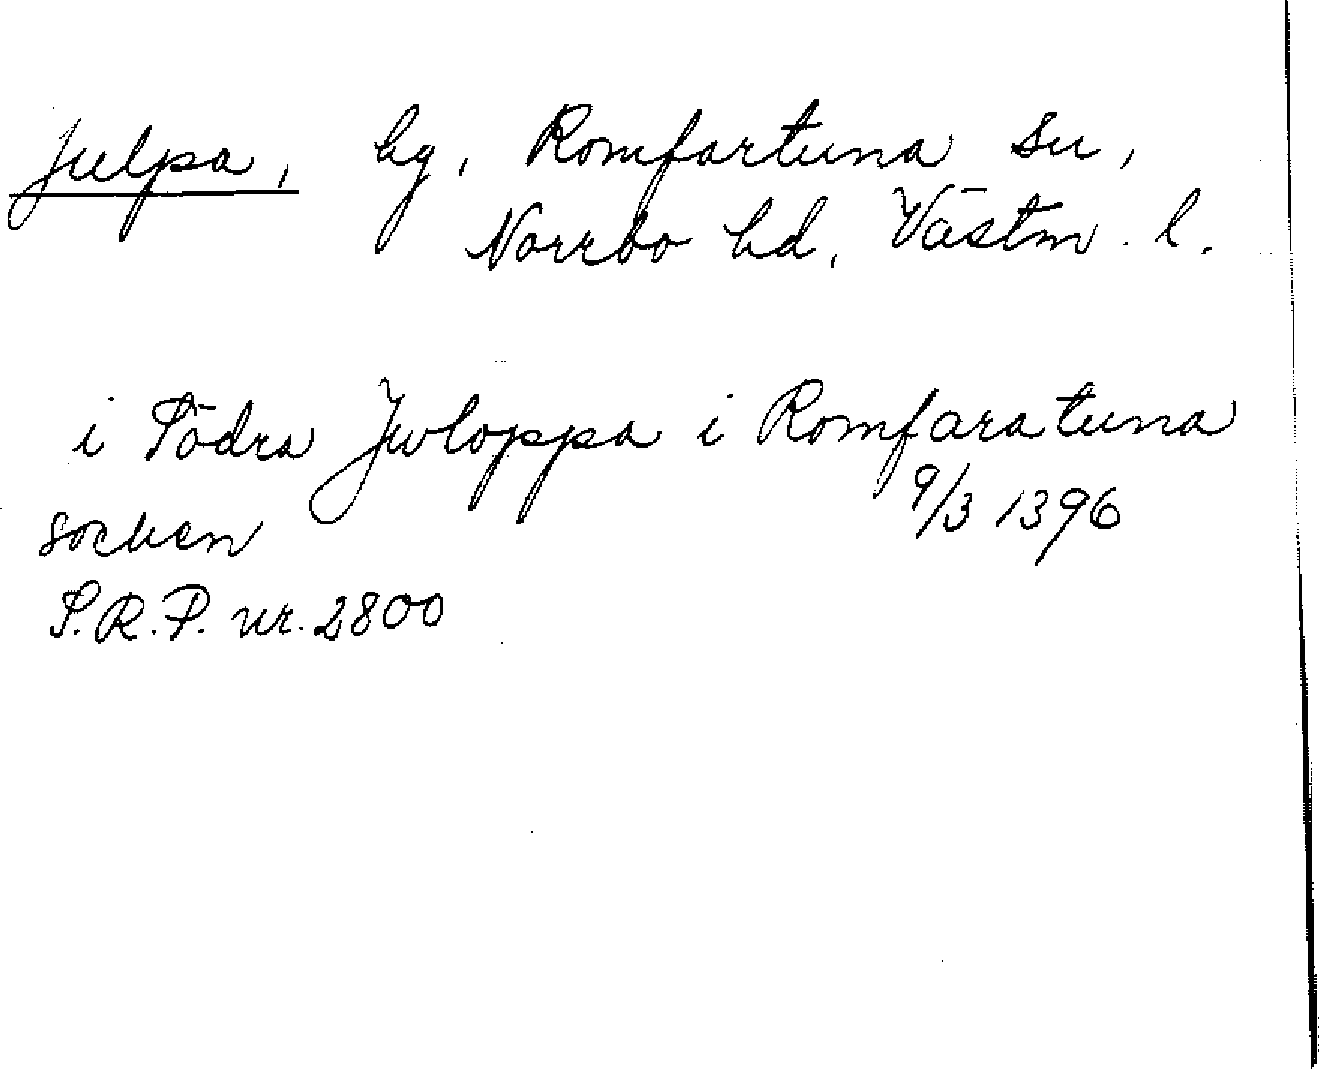 Julpa, by, Romfartuna sn,
Norrbo hd, Västm. l.
i Södra Jwloppa i Romfaratuna
9/3 1396
socken
S.R.P. nr. 2800